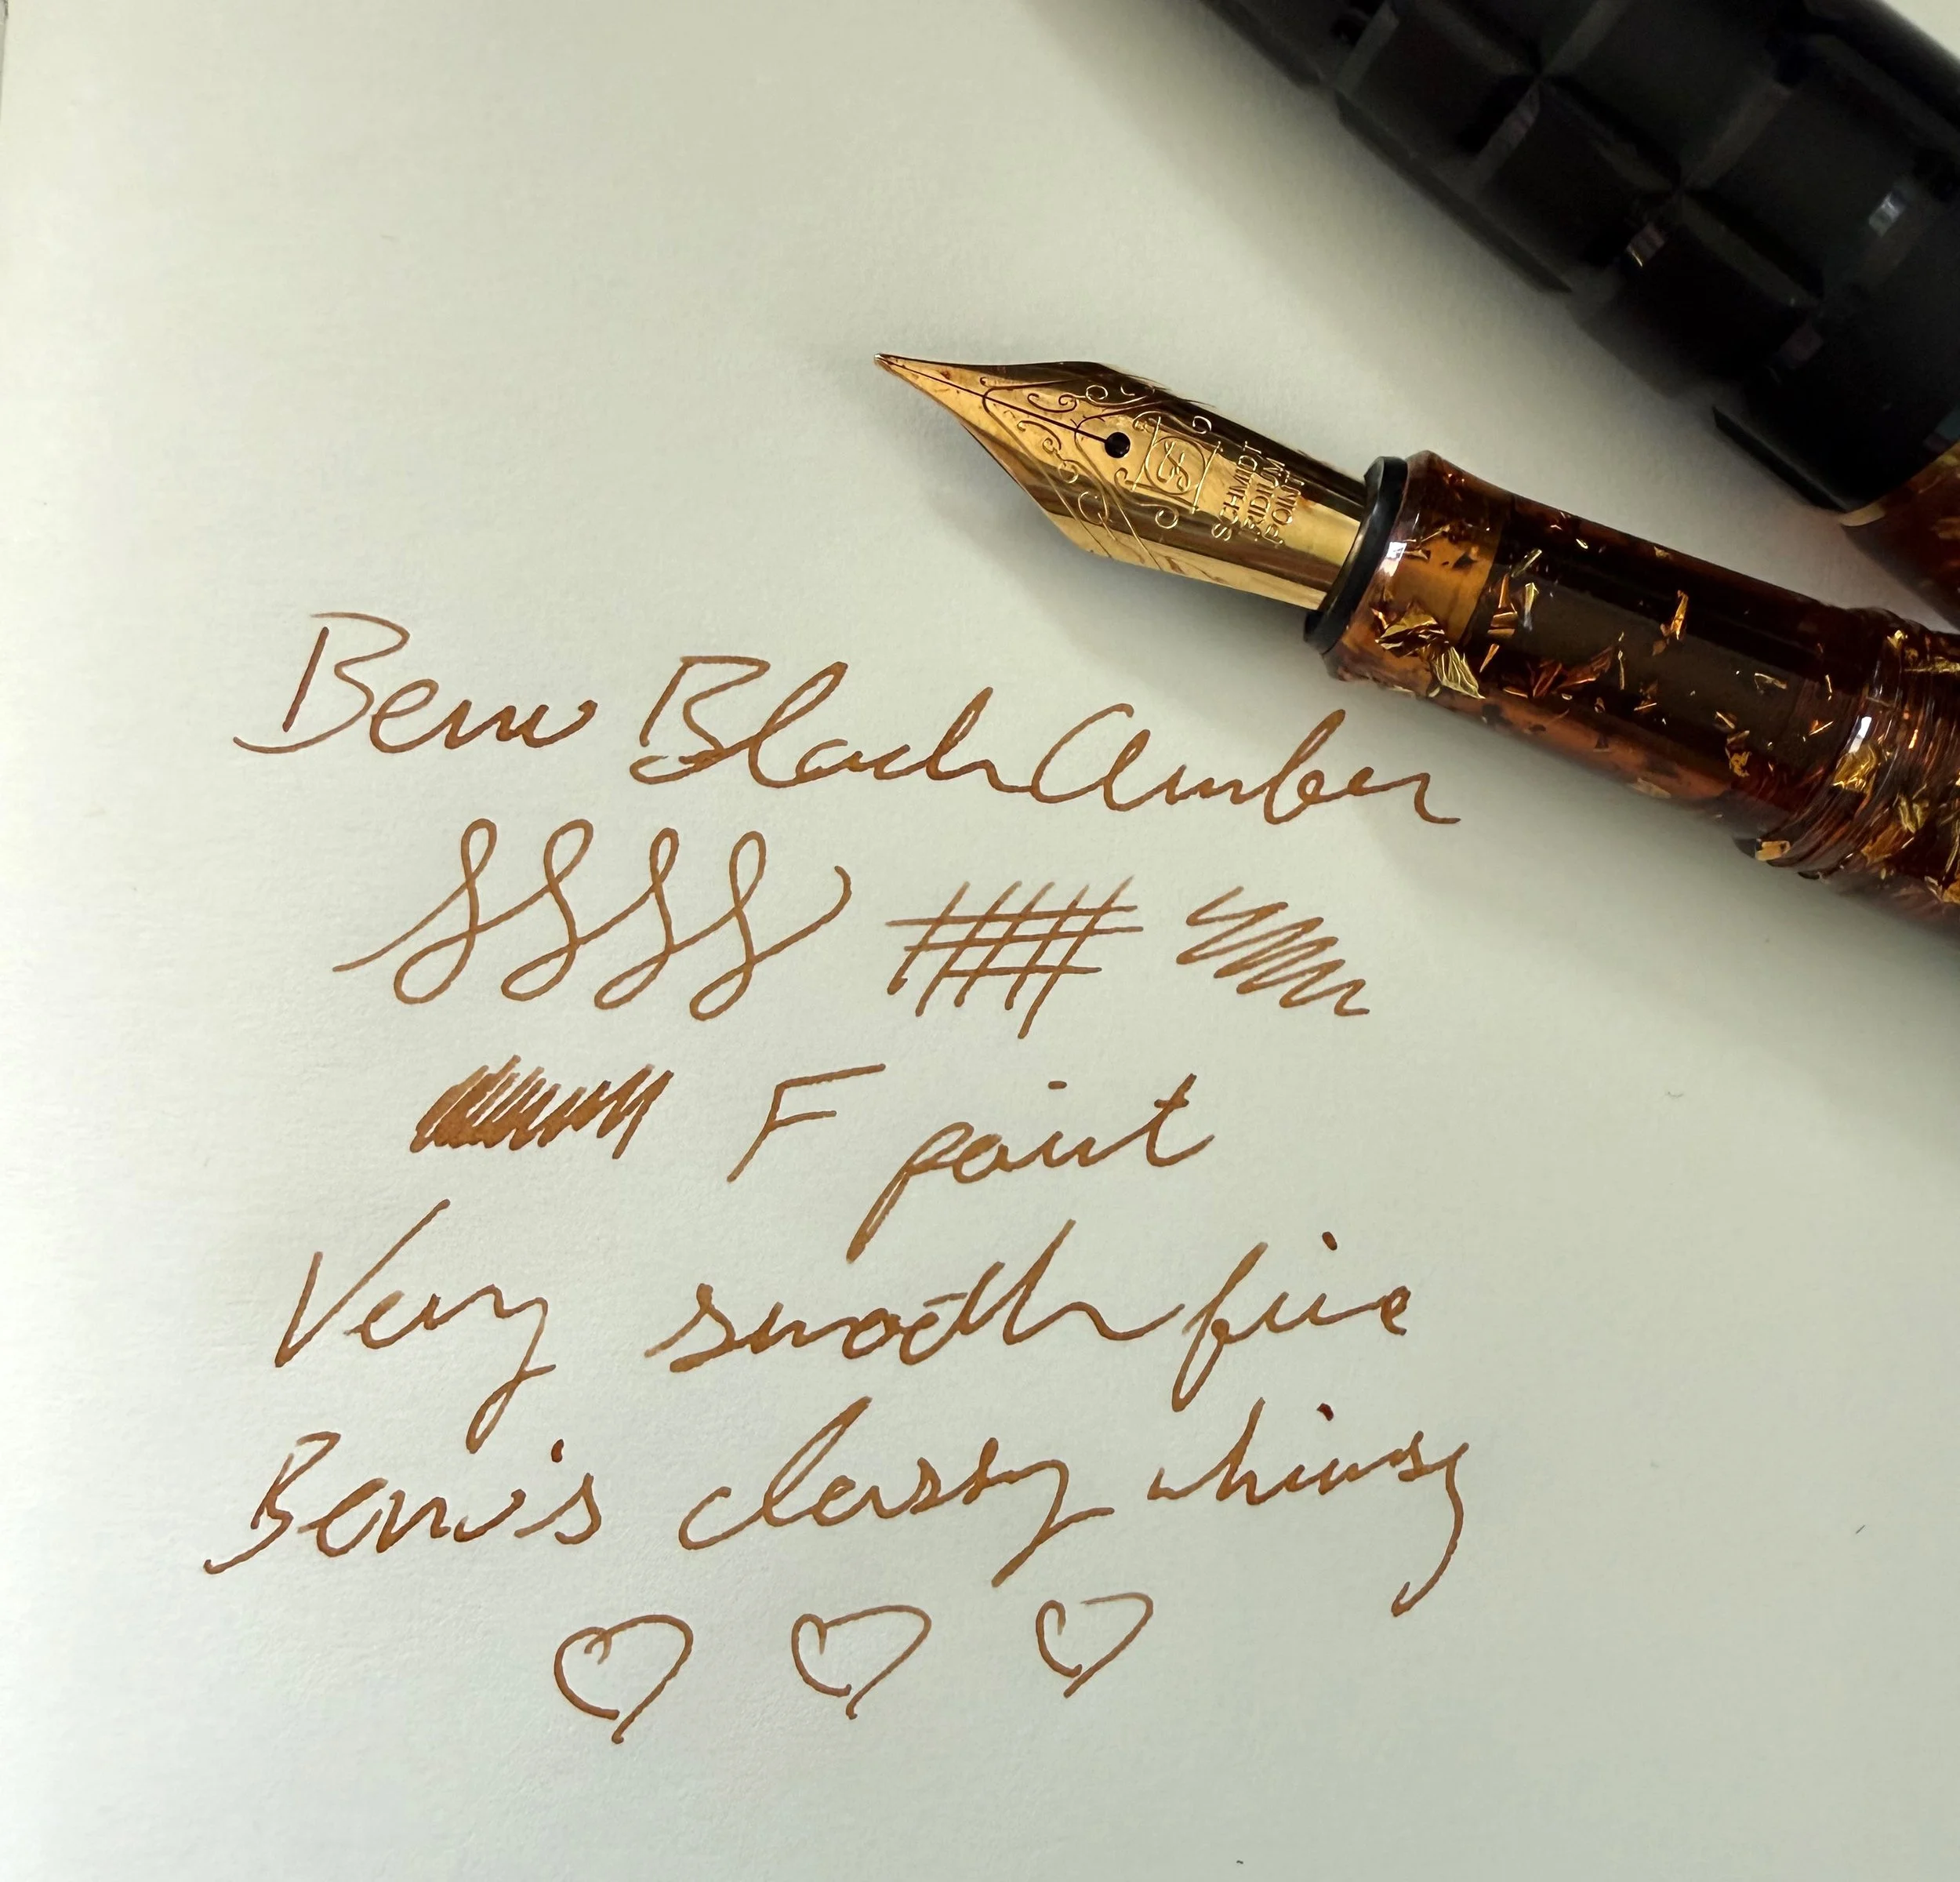 SCHMIDT
IRIDIUM
POINT
Benu Black Amber
F point
Very smooth fine
Benu's classy whimsy